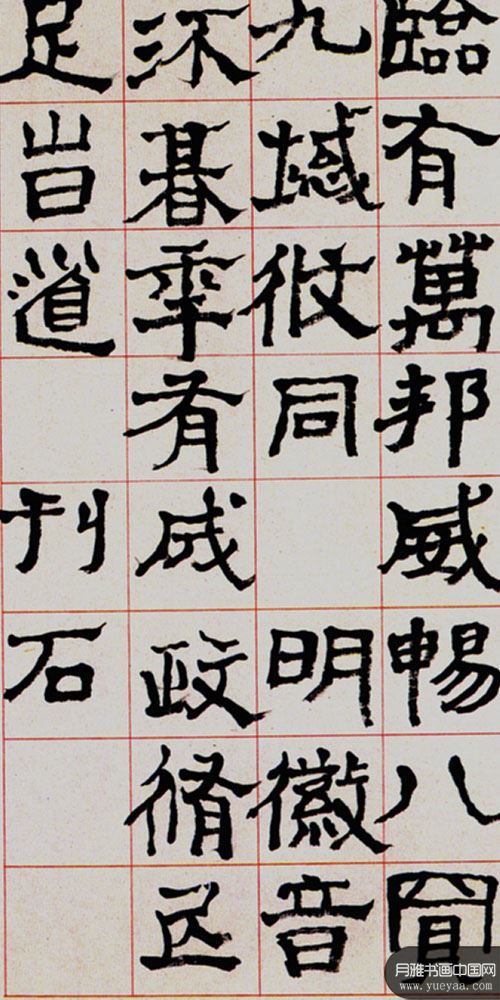 臨有萬邦威暢八
九域攸同 明徽音
朞年有成政脩
足旹道 刊石
月雅书画中国网
www.yueyaa.com